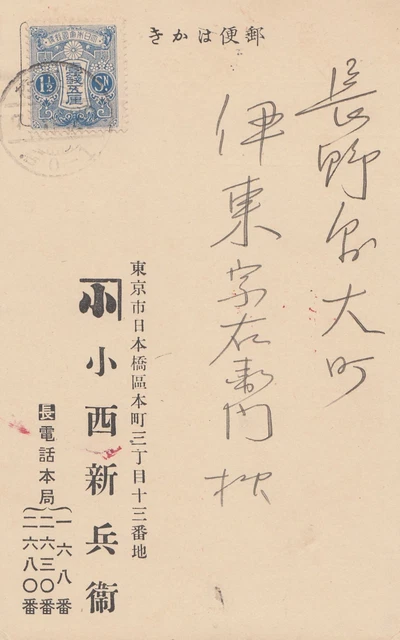 郵便はかき
1½ Sn.
長野県大町
伊東宗右衛門 様
東京市日本橋區本町三丁目十三番地
小
小西新兵衞
長電話本局
一六八番
二六三〇番
二六八〇番